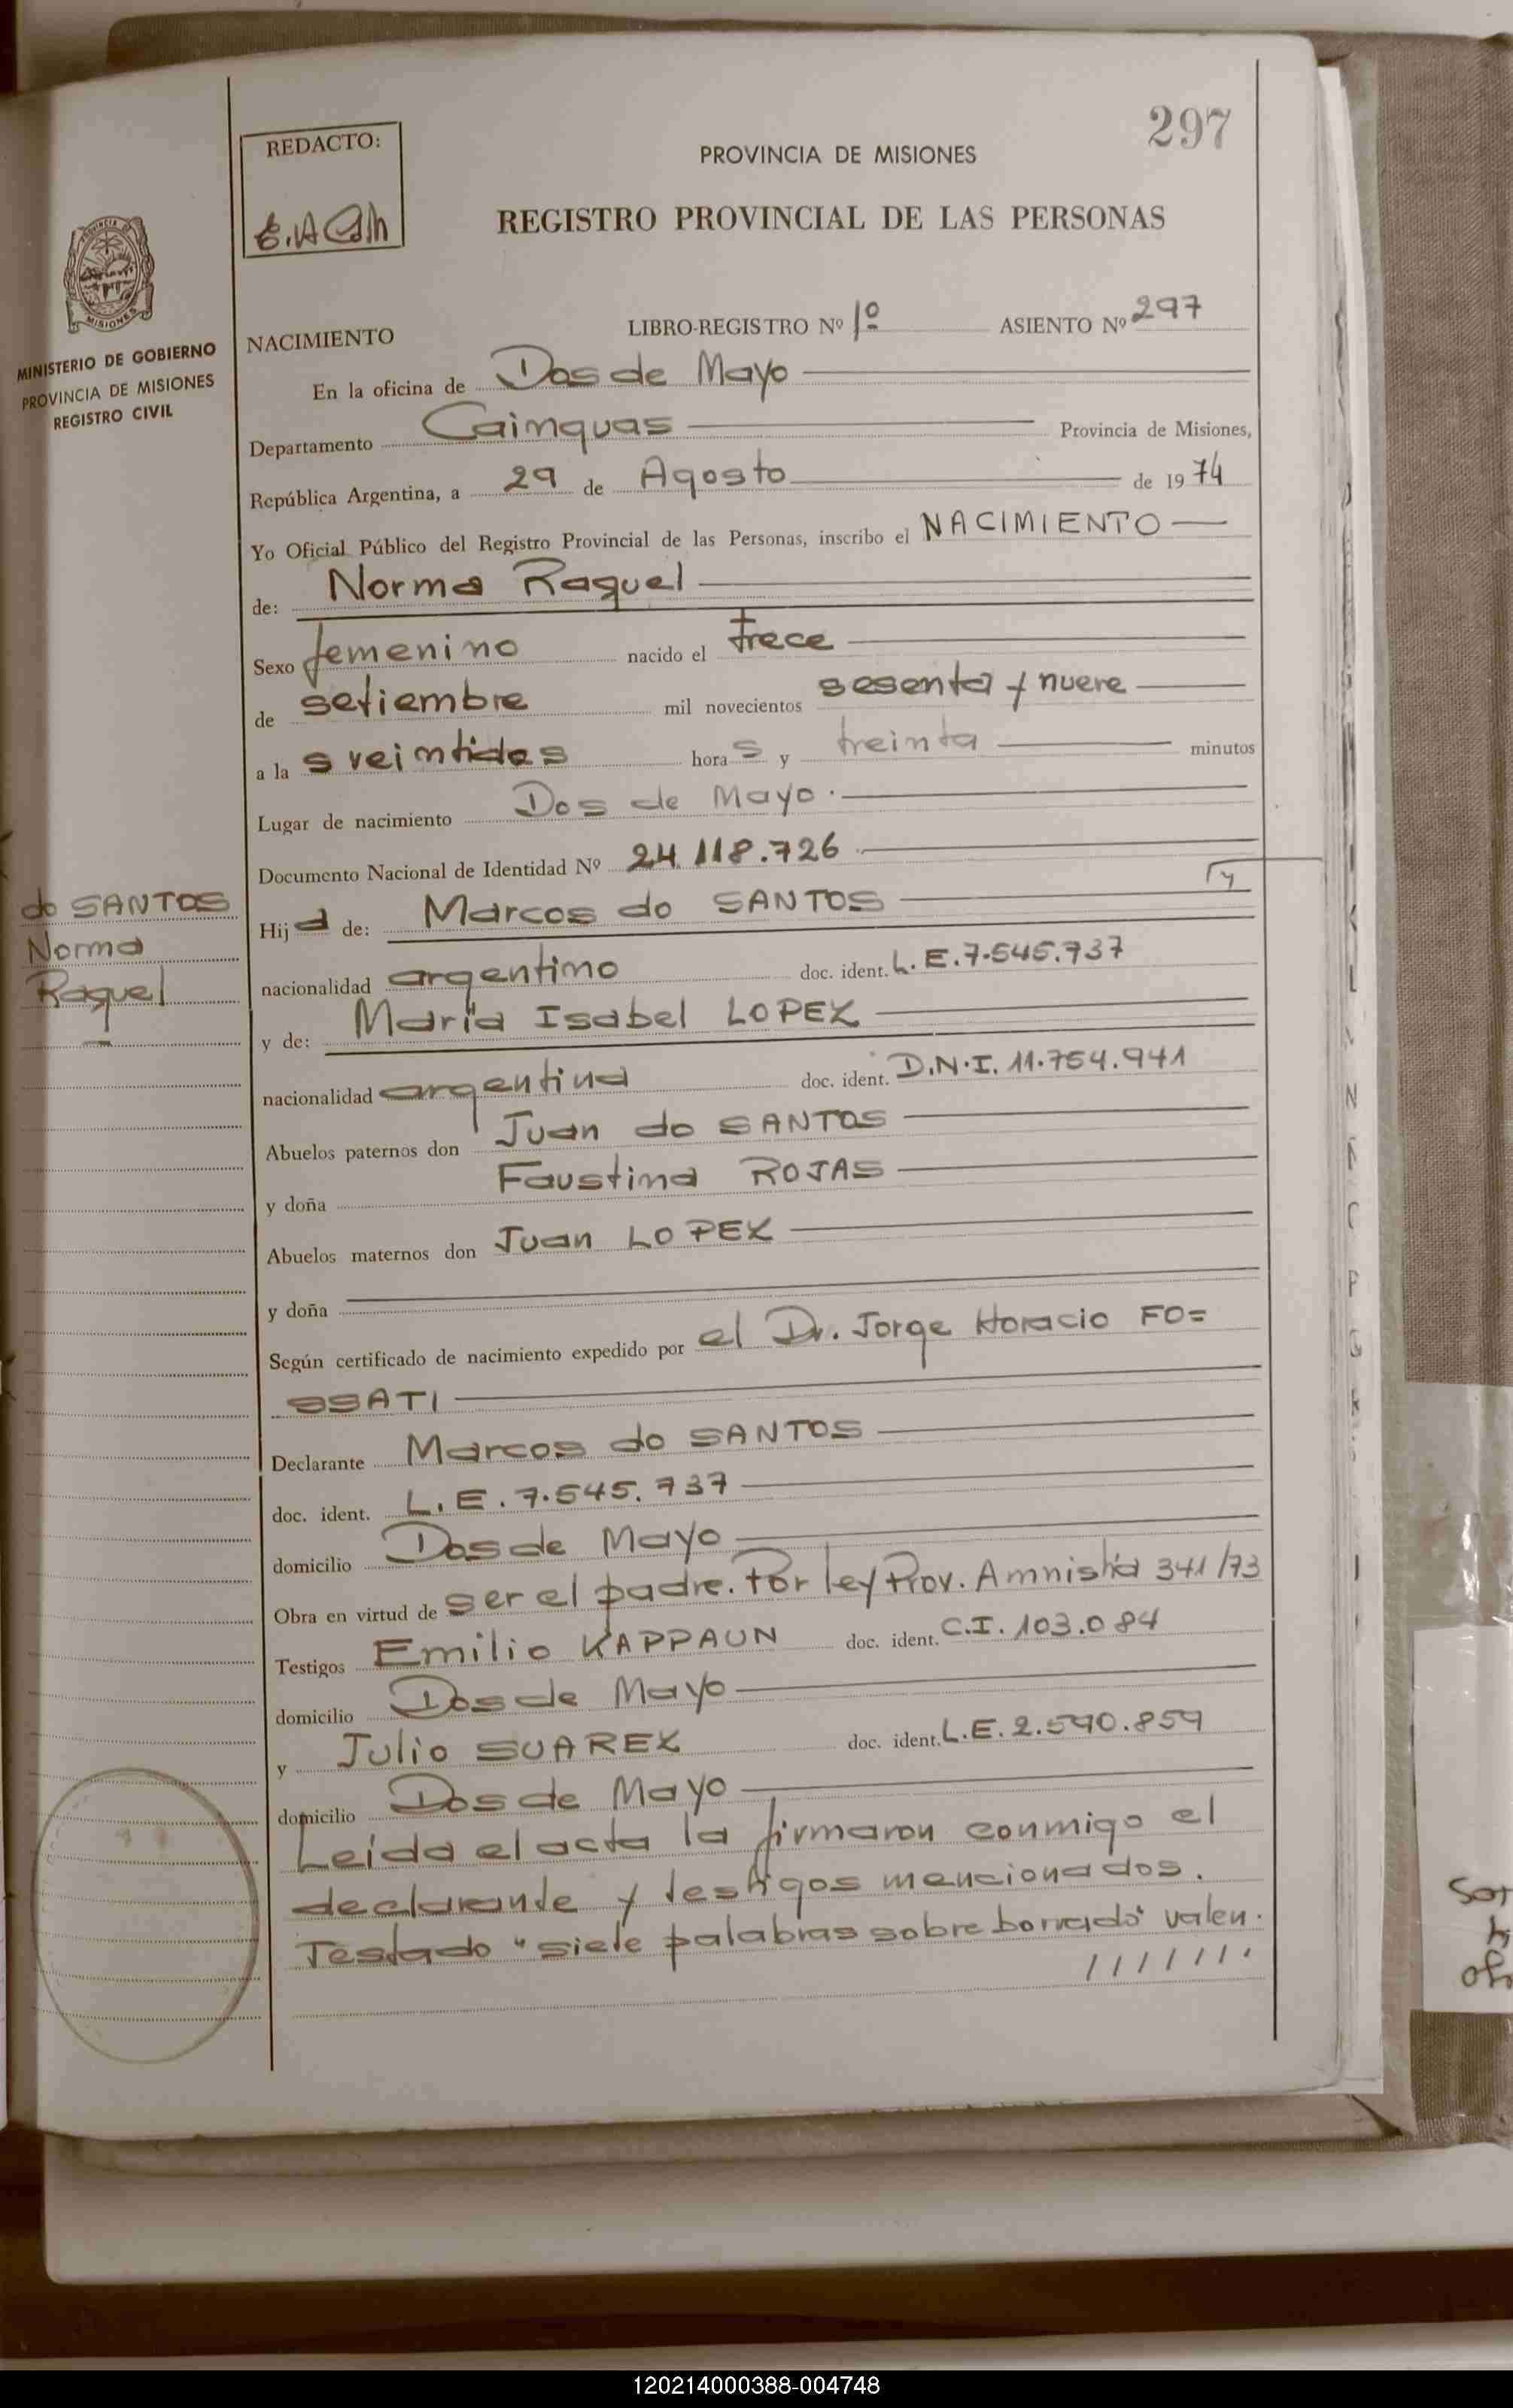 297
REDACTO:
PROVINCIA DE MISIONES
REGISTRO PROVINCIAL DE LAS PERSONAS
MISIONES
MINISTERIO DE GOBIERNO
PROVINCIA DE MISIONES
REGISTRO CIVIL
NACIMIENTO LIBRO-REGISTRO Nº 1º ASIENTO Nº 297
En la oficina de Dos de Mayo
Departamento Cainguas Provincia de Misiones,
República Argentina, a 29 de Agosto de 1974
Yo Oficial Público del Registro Provincial de las Personas, inscribo el NACIMIENTO
de: Norma Raquel
Sexo femenino nacido el trece
de setiembre mil novecientos sesenta y nueve
a las veintidos horas y treinta minutos
Lugar de nacimiento Dos de Mayo.
Documento Nacional de Identidad Nº 24.118.726
do SANTOS
Norma
Raquel
Hija de: Marcos do SANTOS
nacionalidad argentino doc. ident. L.E.7.545.737
y de: María Isabel LOPEZ
nacionalidad argentina doc. ident. D.N.I. 11.754.941
Abuelos paternos don Juan do SANTOS
y doña Faustina ROJAS
Abuelos maternos don Juan LOPEZ
y doña
Según certificado de nacimiento expedido por el Dr. Jorge Horacio FO=
SSATI
Declarante Marcos do SANTOS
doc. ident. L.E.7.545.737
domicilio Dos de Mayo
Obra en virtud de ser el padre. Por ley Prov. Amnistía 341/73
Testigos Emilio KAPPAUN doc. ident. C.I. 103.084
domicilio Dos de Mayo
y Julio SUAREZ doc. ident. L.E.2.590.859
domicilio Dos de Mayo
Leída el acta la firmaron conmigo el
declarante y testigos mencionados.
Testado "siete palabras sobre borrado" valen.
120214000388-004748